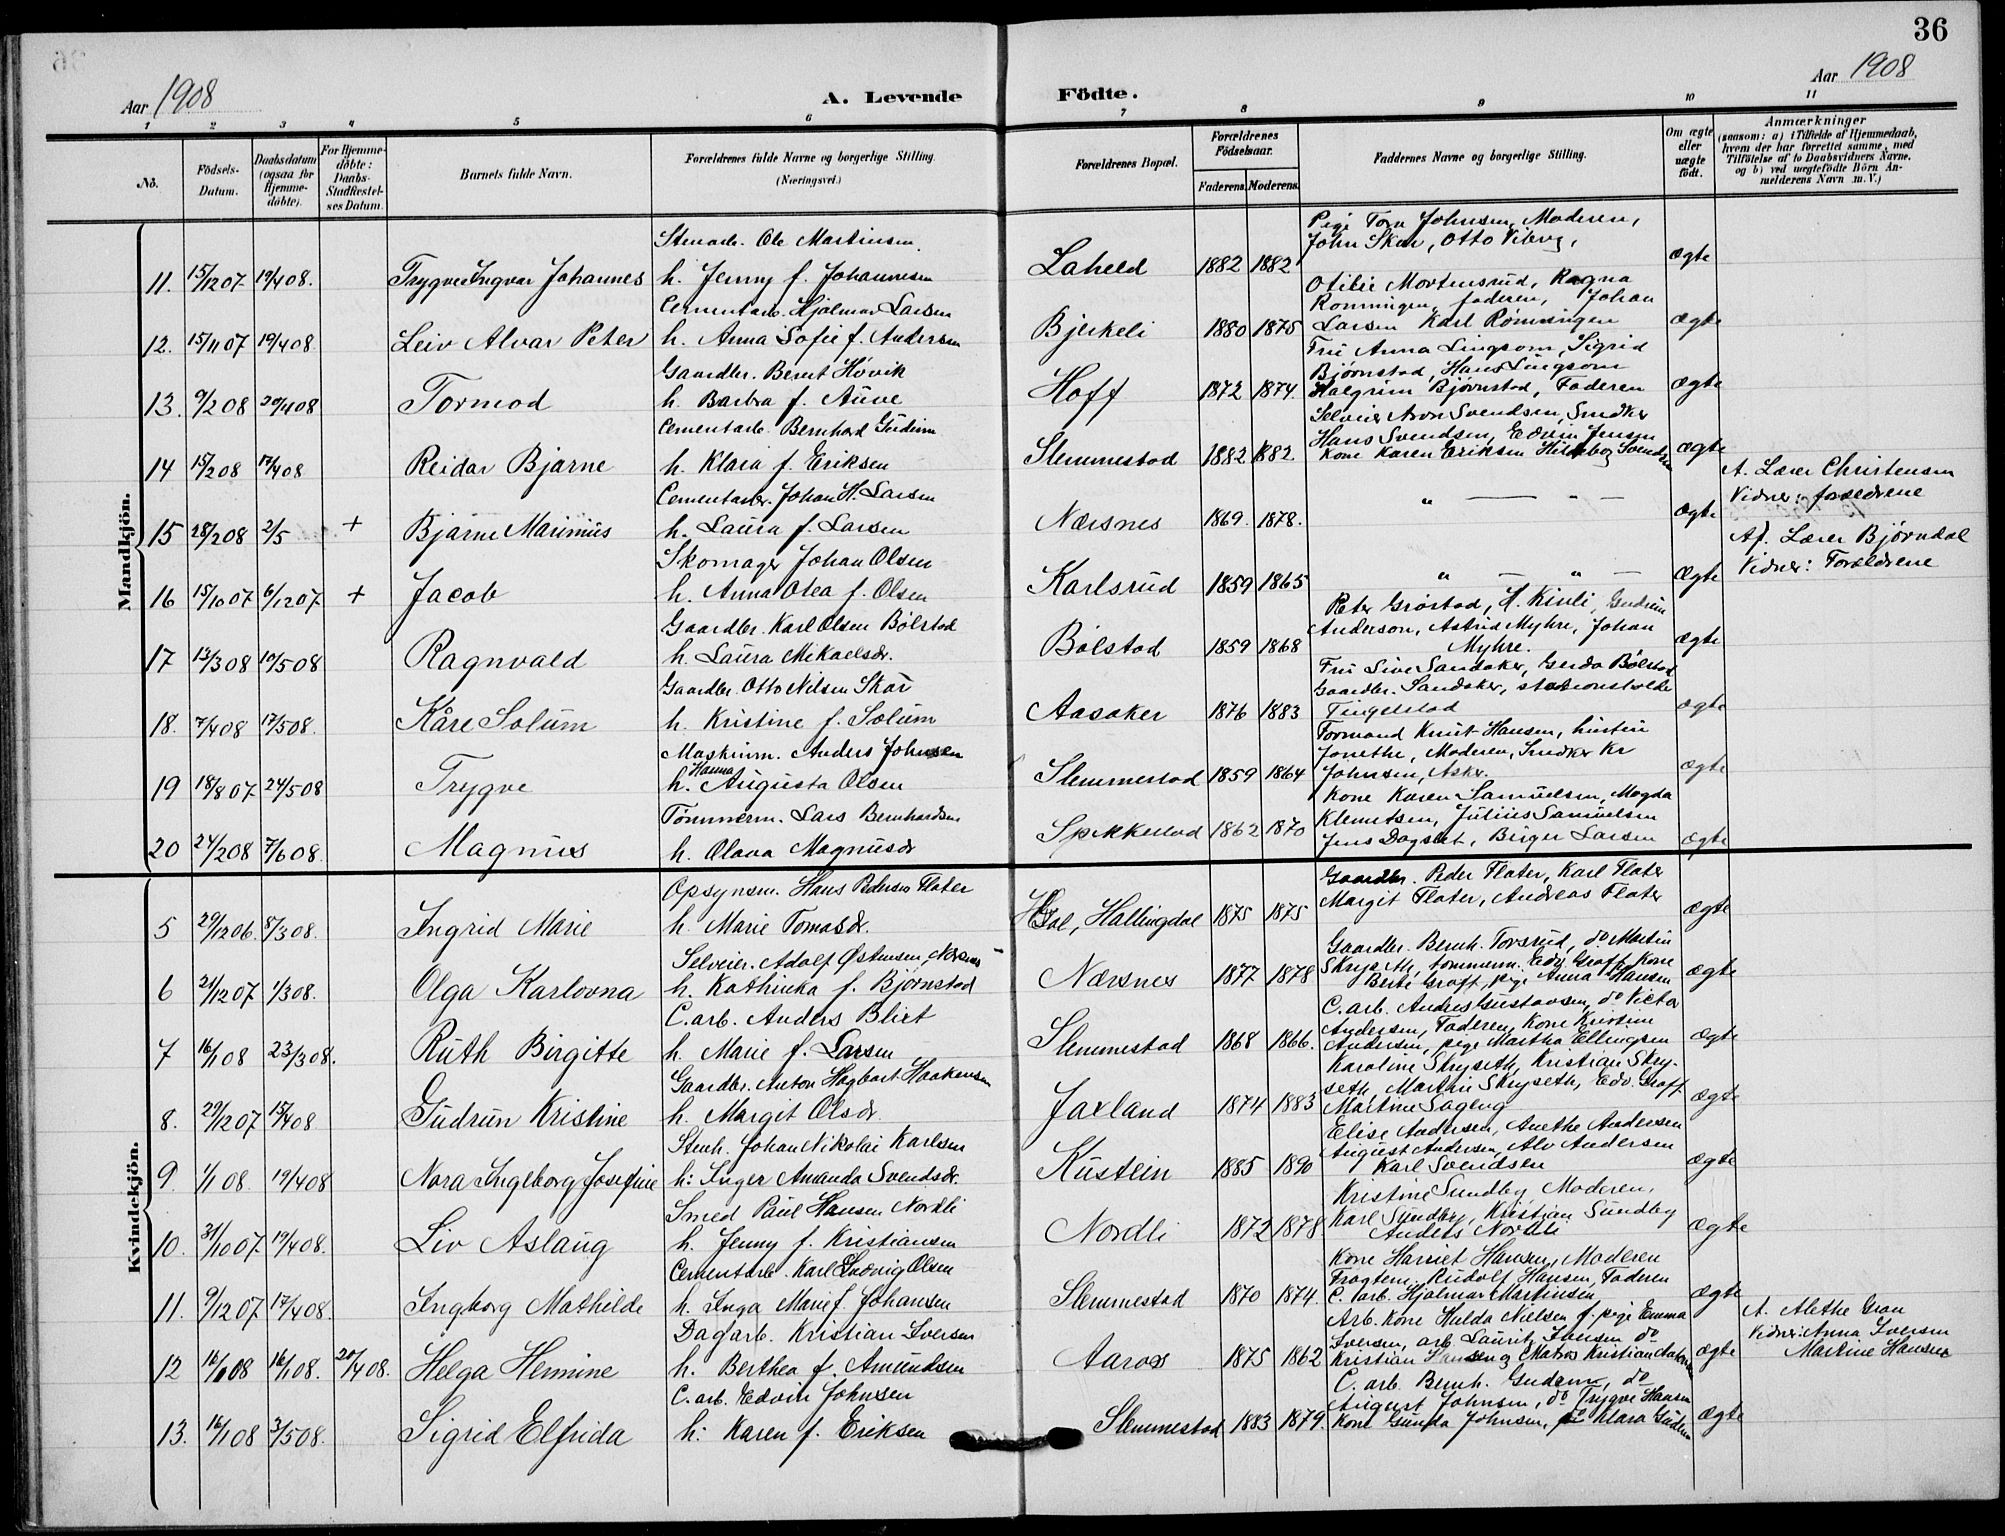 36
Aar 1908
A. Levende Födte.
Aar 1908
1 2 3 4 5 6 7 8 9 10 11
No.
Födsels-Datum.
Daabsdatum (ogsaa for Hjemmedöbte).
For Hjemmedöbte: Daabs-Stadfæstelses Datum.
Barnets fulde Navn.
Forældrenes fulde Navne og borgerlige Stilling. (Næringsvei.)
Forældrenes Bopæl.
Forældrenes Födselsaar.
Faderens. Moderens.
Faddernes Navne og borgerlige Stilling.
Om ægte eller uægte födt.
Anmærkninger
(saasom: a) i Tilfælde af Hjemmedaab, hvem der har forrettet samme, med Tilföielse af to Daabsvidners Navne. og b) ved uægtefödte Börn Anmelderens Navn m. V.)
Mandkjön.
Stenarb. Ole Martinsen
Pige Tora Johnsen, Moderen,
John Skar, Otto Viberg,
11. 15/12 07 19/4 08. Trygve Ingvar Johannes h. Jenny f. Johannesen Laheld 1882 1882 ægte
Cementarb. Hjalmar Larsen
Otilie Mortensrud, Ragna
Rønningen, faderen, Johan
12. 15/11 07 19/4 08 Leiv Alvar Peter h. Anna Sofie f. Andersen Bjerkeli 1880 1875 Larsen Karl Rønningen ægte
Gaardbr. Bernt Høvik
Fru Anna Lingsom, Sigrid
Bjørnstad, Hans Lingsom
13. 9/2 08 20/4 08 Tormod h. Barbra f. Auve Hoff 1872 1874. Halgrim Bjørnstad, Faderen ægte
Cementarb. Bernhard Gudem
Selveier Aron Svendsen, Snedker
Hans Svendsen, Edvin Jensen
14 15/2 08 17/4 08 Reidar Bjarne h. Klara f. Eriksen Slemmestad 1882 1882. Kone Karen Eriksen Hildeborg Svendsen ægte
Cementarb. Johan H. Larsen
A. Lærer Christensen
Vidner: forældrene
15 28/2 08 2/5 + Bjarne Marinius h. Laura f. Larsen Nærsnes 1869. 1878. " — " — ægte
Skomager Johan Olsen
Af. Lærer Bjørndal
Vidner: Forældrene
16 15/10 07 6/12 07 + Jacob h. Anna Olea f. Olsen Karlsrud 1859 1865 " — " — ægte
Gaardbr. Karl Olsen Bölstad
Peter Grøstad, H. Kinli, Gudrun
Anderson, Astrid Myhre, Johan
17 13/3 08 10/5 08 Ragnvald h. Laura Mikaelsdr. Bölstad 1859 1868 Myhre. ægte
Gaardbr. Otto Nilsen Skar
Fru Live Sandaker, Gerda Bölstad
Gaardbr. Sandaker, stationsholder
18. 7/4 08 17/5 08. Kåre Solum h. Kristine f. Solum Aasaker 1876 1883 Tingelstad ægte
Maskinm. Anders Johnsen
Formand Knut Hansen, hustru
Jonethe, Moderen, Snedker Kr
19 18/8 07 24/5 08 Trygve h. Hanna Augusta Olsen Slemmestad 1859 1864 Johnsen, Asker. ægte
Tømmerm. Lars Bernhardsen
Kone Karen Samuelsen, Magda
Klemetsen, Julius Samuelsen
20 24/2 08 7/6 08. Magnus h. Olava Magnusdr Spikkestad 1862 1870 Jens Dagslet, Birger Larsen ægte
Kvindekjön.
Opsynsm. Hans Pedersen Flater
Gaardbr. Peder Flater, Karl Flater
Margit Flater, Andreas Flater
5 29/12 06. 8/3 08. Ingrid Marie h. Marie Tomasdr. Gol, Hallingdal 1875 1875 ægte
Selveier. Adolf Østensen, Nærsnes
Gaardbr. Bernh. Torsrud, do Martin
6 21/12 07 1/3 08. Olga Karlovna h. Kathinka f. Bjørnstad Nærsnes 1877 1878 Skryseth, tømmerm. Edv. Grøft, Kone ægte
Berte Grøft, pige Anna Hansen
C. arb. Anders Blixt
C. arb. Andres Gustavsen, do Victor
Andersen, Faderen, Kone Kristine
7 16/1 08 23/3 08. Ruth Birgitte h. Marie f. Larsen Slemmestad 1868 1866. Andersen, pige Martha Ellingsen ægte
Gaardbr. Anton Hagbart Haakensen
Karoline Skryseth, Kristian Skry-
seth, Martin Skryseth, Edv. Grøft
8. 29/12 07 15/4 08 Gudrun Kristine h. Margit Olsdr. Jaxland 1874 1883 Martine Sageng ægte
Stenh. Johan Nikolai Karlsen
Elise Andersen, Anethe Andersen
August Andersen, Alv Andersen
9. 1/1 08. 19/4 08 Nora Ingeborg Josefine h: Inger Amanda Svendsdr. Kustein 1885 1890 Karl Svendsen ægte
Smed Paul Hansen Nordli
Kristine Sundby, Moderen,
Karl Sundby, Kristian Sundby
10. 31/10 07. 19/4 08. Liv Aslaug h. Jenny f. Kristiansen Nordli 1872 1878. Anders Nordli ægte
Cementarb. Karl Ludvig Olsen
Kone Harriet Hansen, Moderen
Frogten, Rudolf Hansen, Faderen
11. 9/12 07 17/4 08. Ingborg Mathilde h. Inga Marie f. Johansen Slemmestad 1870 1874. C. arb. Hjalmar Martinsen ægte
Dagarb. Kristian Iversen
Arb. Kone Hulda Nielsen f. pige Emma
Iversen, arb. Lauritz Iversen do
A. Alethe Gran
Vidner: Anna Iversen
Martine Hansen
12 16/1 08 16/1 08. 20/4 08. Helga Hermine h. Berthea f. Amundsen Aaros 1875 1862 Kristian Hansen, Matros Kristian ægte
C. arb. Edvin Johnsen
C. arb. Bernh. Gudem, do
August Johnsen, do Trygve Hansen
13. 16/1 08 3/5 08. Sigrid Elfrida h: Karen f. Eriksen Slemmestad 1883 1879. Kone Gunda Johnsen, do Klara Gudem ægte